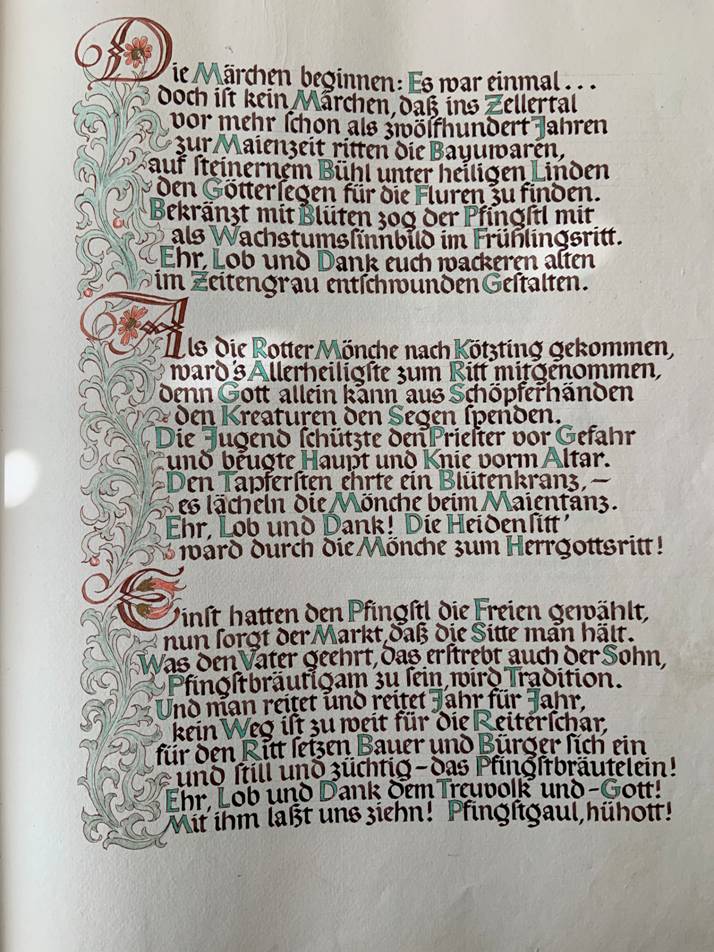 Die Märchen beginnen: Es war einmal...
doch ist kein Märchen, daß ins Zellertal
vor mehr schon als zwölfhundert Jahren
zur Maienzeit ritten die Bayuwaren,
auf steinernem Bühl unter heiligen Linden
den Göttersegen für die Fluren zu finden.
Bekränzt mit Blüten zog der Pfingstl mit
als Wachstumssinnbild im Frühlingsritt.
Ehr, Lob und Dank euch wackeren alten
im Zeitengrau entschwunden Gestalten.
Als die Rotter Mönche nach Kötzting gekommen,
ward's Allerheiligste zum Ritt mitgenommen,
denn Gott allein kann aus Schöpferhänden
den Kreaturen den Segen spenden.
Die Jugend schützte den Priester vor Gefahr
und beugte Haupt und Knie vorm Altar.
Den Tapfersten ehrte ein Blütenkranz, –
es lächeln die Mönche beim Maientanz.
Ehr, Lob und Dank! Die Heidensitt'
ward durch die Mönche zum Herrgottsritt!
Einst hatten den Pfingstl die Freien gewählt,
nun sorgt der Markt, daß die Sitte man hält.
Was den Vater geehrt, das erstrebt auch der Sohn,
Pfingstbräutigam zu sein, wird Tradition.
Und man reitet und reitet Jahr für Jahr,
kein Weg ist zu weit für die Reiterschar,
für den Ritt setzen Bauer und Bürger sich ein
und still und züchtig – das Pfingstbräutelein!
Ehr, Lob und Dank dem Treuvolk und – Gott!
Mit ihm laßt uns ziehn! Pfingstgaul, hühott!